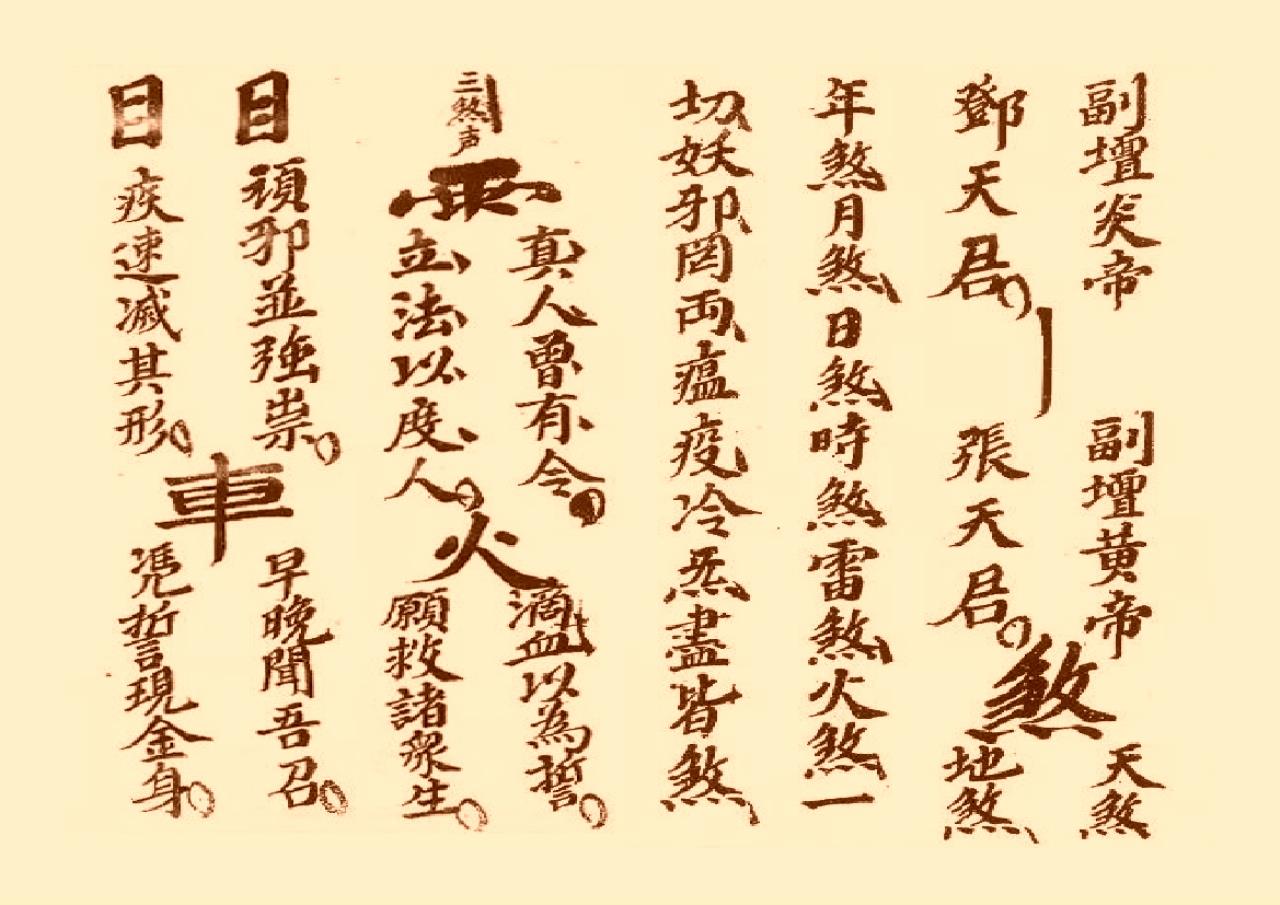 副壇炎帝
鄧天君
副壇黃帝
張天君
煞
天煞
地煞
年煞月煞日煞時煞雷煞火煞一
切妖邪罔両瘟疫冷炁盡皆煞
三煞声
雨
真人曾有令
立法以度人
火
滴血以為誓
願救諸眾生
日
頑邪並強祟
日
疾速滅其形
車
早晚聞吾召
凴誓現金身